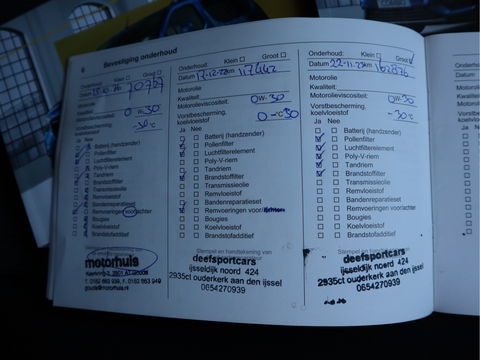 6 Bevestiging onderhoud
Onderhoud: Klein Groot
Datum km 70767
Motorolie
Kwaliteit:
Motorolieviscositeit: 0W-30
Vorstbescherming,
koelvloeistof -30°C
Ja Nee
Batterij (handzender)
Pollenfilter
Luchtfilterelement
Poly-V-riem
Tandriem
Brandstoffilter
Transmissieolie
Remvloeistof
Bandenreparatieset
Remvoeringen voor/achter
Bougies
Koelvloeistof
Brandstofadditief
motorhuis
Onderhoud: Klein Groot
Datum 17-12-22 km 117442
Motorolie
Kwaliteit:
Motorolieviscositeit: 0W-30
Vorstbescherming,
koelvloeistof
Ja Nee
Batterij (handzender)
Pollenfilter
Luchtfilterelement
Poly-V-riem
Tandriem
Brandstoffilter
Transmissieolie
Remvloeistof
Bandenreparatieset
Remvoeringen voor/achter
Bougies
Koelvloeistof
Brandstofadditief
Stempel en handtekening van
deefsportcars
ijsseldijk noord 424
2935ct ouderkerk aan den ijssel
0654270939
Onderhoud: Klein Groot
Datum 22-11-23 km 162876
Motorolie
Kwaliteit:
Motorolieviscositeit: 0W-30
Vorstbescherming,
koelvloeistof -30°C
Ja Nee
Batterij (handzender)
Pollenfilter
Luchtfilterelement
Poly-V-riem
Tandriem
Brandstoffilter
Transmissieolie
Remvloeistof
Bandenreparatieset
Remvoeringen voor/achter
Bougies
Koelvloeistof
Brandstofadditief
Stempel en handtekening van
deefsportcars
ijsseldijk noord 424
2935ct ouderkerk aan den ijssel
0654270939